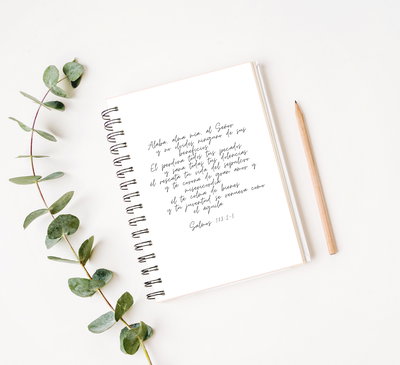 Alaba, alma mía, al Señor
y no olvides ninguno de sus
beneficios.
Él perdona todos tus pecados
y sana todas tus dolencias
él rescata tu vida del sepulcro
y te corona de gran amor y
misericordia
él te colma de bienes
y tu juventud se renueva como
el águila
Salmos 103:2-5